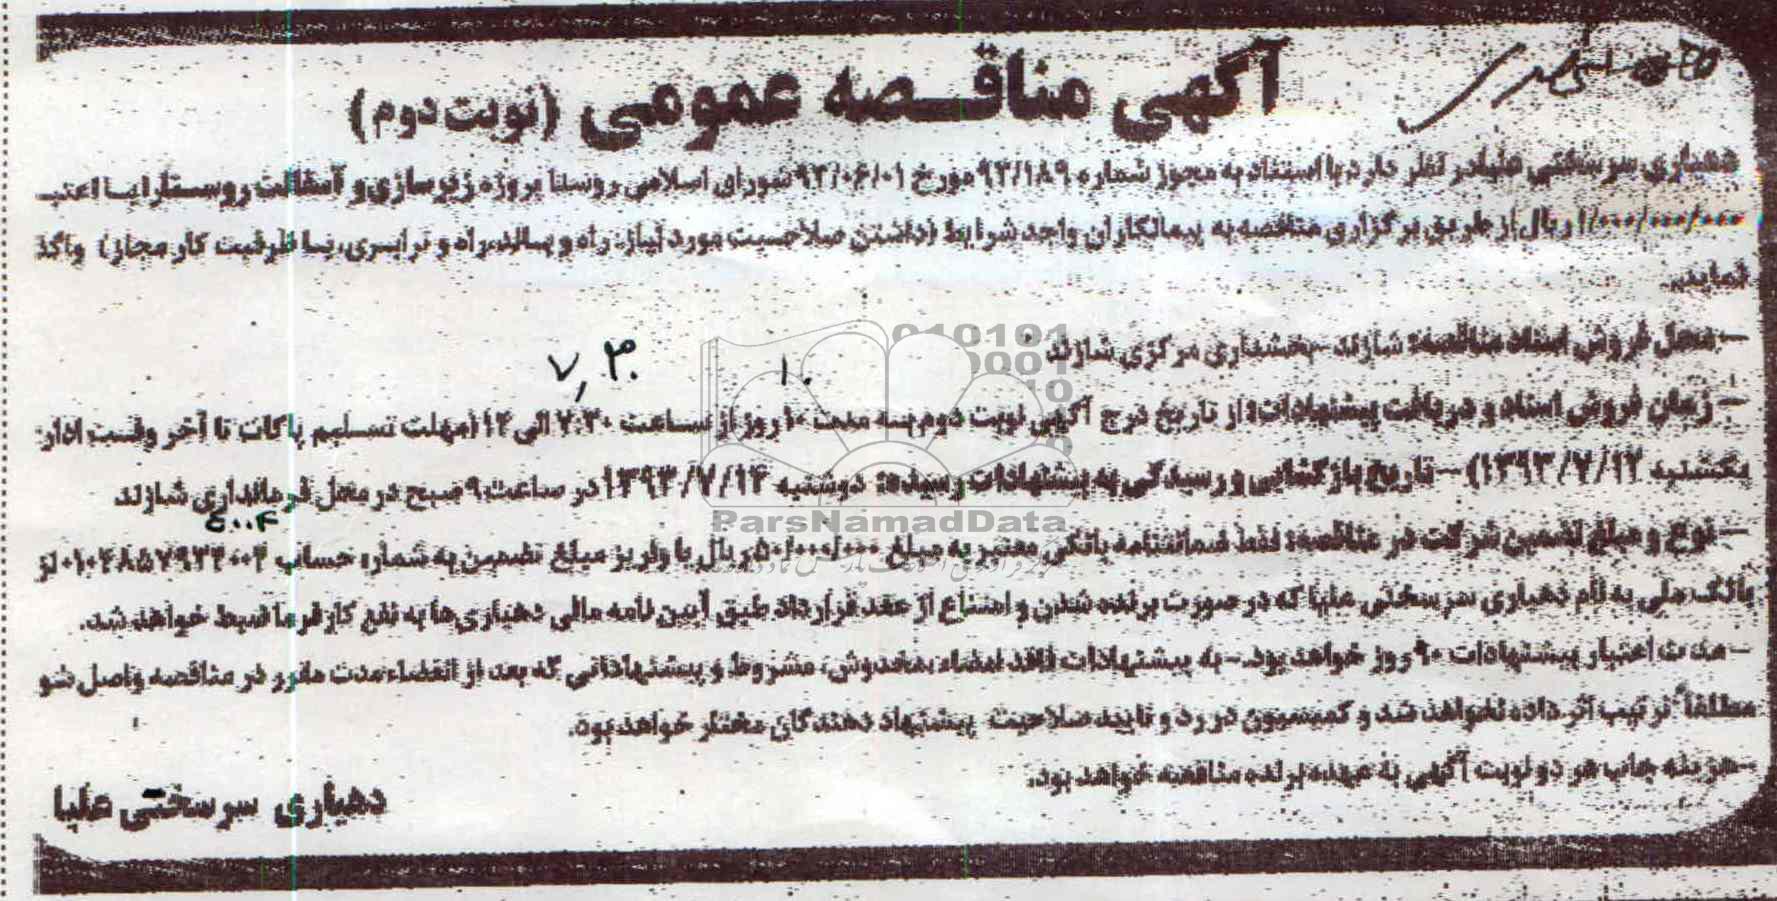 آگهی مناقصه عمومی (نوبت دوم)
دهیاری سرسختی علیا در نظر دارد با استناد به مجوز شماره ۹۳/۱۸۹ مورخ ۹۳/۰۶/۰۱ شورای اسلامی روستا پروژه زیرسازی و آسفالت روستا را با اعتب
۱/۰۰۰/۰۰۰/۰۰۰ ریال از طریق برگزاری مناقصه به پیمانکاران واجد شرایط (داشتن صلاحیت مورد نیاز، راه و باند، راه و ترابری، با ظرفیت کار مجاز) واگذ
نماید.
–محل فروش اسناد مناقصه: شازند –بخشداری مرکزی شازند
۱۰ ۷,۳۰
– زمان فروش اسناد و دریافت پیشنهادات: از تاریخ درج آگهی نوبت دوم به مدت ۱۰ روز از ساعت ۷:۳۰ الی ۱۴ (مهلت تسلیم پاکات تا آخر وقت ادار
یکشنبه ۱۳۹۳/۷/۱۳) – تاریخ بازگشایی و رسیدگی به پیشنهادات رسیده: دوشنبه ۱۳۹۳/۷/۱۴ در ساعت ۹ صبح در محل فرمانداری شازند
010101
0001
10
ParsNamadData
–نوع و مبلغ تضمین شرکت در مناقصه: فقط ضمانتنامه بانکی معتبر به مبلغ ۵۰/۰۰۰/۰۰۰ ریال یا واریز مبلغ تضمین به شماره حساب ۰۱۰۴۸۵۷۹۳۴۰۰۴ نز
بانک ملی به نام دهیاری سرسختی علیا که در صورت برنده شدن و امتناع از عقد قرارداد طبق آیین نامه مالی دهیاری‌ها به نفع کارفرما ضبط خواهد شد.
–مدت اعتبار پیشنهادات ۹۰ روز خواهد بود.–به پیشنهادات فاقد امضاء، مخدوش، مشروط و پیشنهاداتی که بعد از انقضاء مدت مقرر در مناقصه واصل شو
مطلقاً ترتیب اثر داده نخواهد شد و کمیسیون در رد و تایید صلاحیت پیشنهاد دهندگان مختار خواهد بود.
–هزینه چاپ هر دو نوبت آگهی به عهده برنده مناقصه خواهد بود.
دهیاری سرسختی علیا